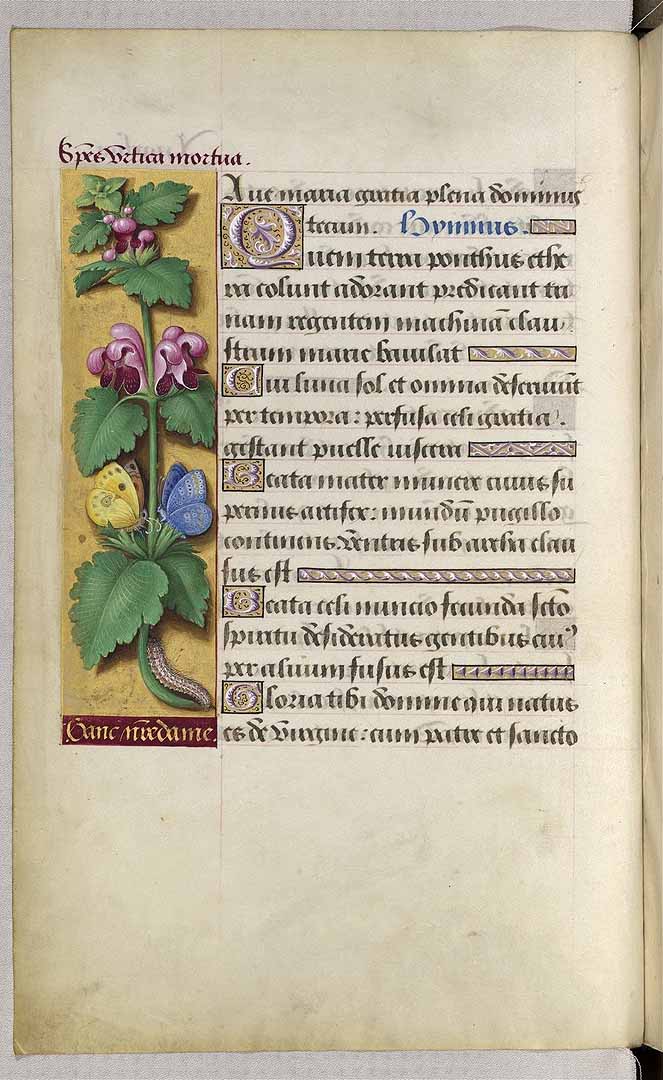 Spēs Vrtica mortua.
Aue maria gratia plena dominus
tecum. Hymnus.
Quem terra ponthus ethe
ra colunt adorant predicant tri
nam regentem machinā clau
strum marie baiulat
Cui luna sol et omnia deseruiunt
per tempora: perfusa celi gratia.
gestant puelle uiscera
Beata mater munere cuius su
pernus artifex: mundū pugillo
continens Ventris sub archa clau
sus est
Beata celi nuncio fecunda scto
spiritu desideratus gentibus cui9
per aluum fusus est
Gloria tibi domine qui natus
es de Virgine: cum patre et sancto
Banc nr̄edame.